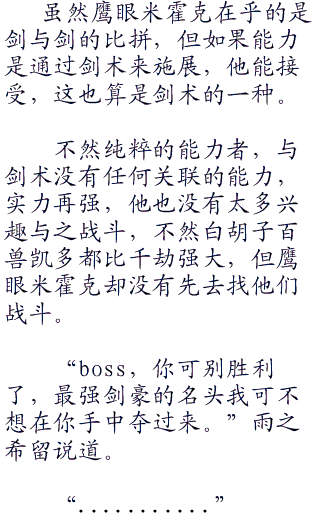 虽然鹰眼米霍克在乎的是
剑与剑的比拼，但如果能力
是通过剑术来施展，他能接
受，这也算是剑术的一种。
不然纯粹的能力者，与
剑术没有任何关联的能力，
实力再强，他也没有太多兴
趣与之战斗，不然白胡子百
兽凯多都比千劫强大，但鹰
眼米霍克却没有先去找他们
战斗。
“boss，你可别胜利
了，最强剑豪的名头我可不
想在你手中夺过来。”雨之
希留说道。
“...........”